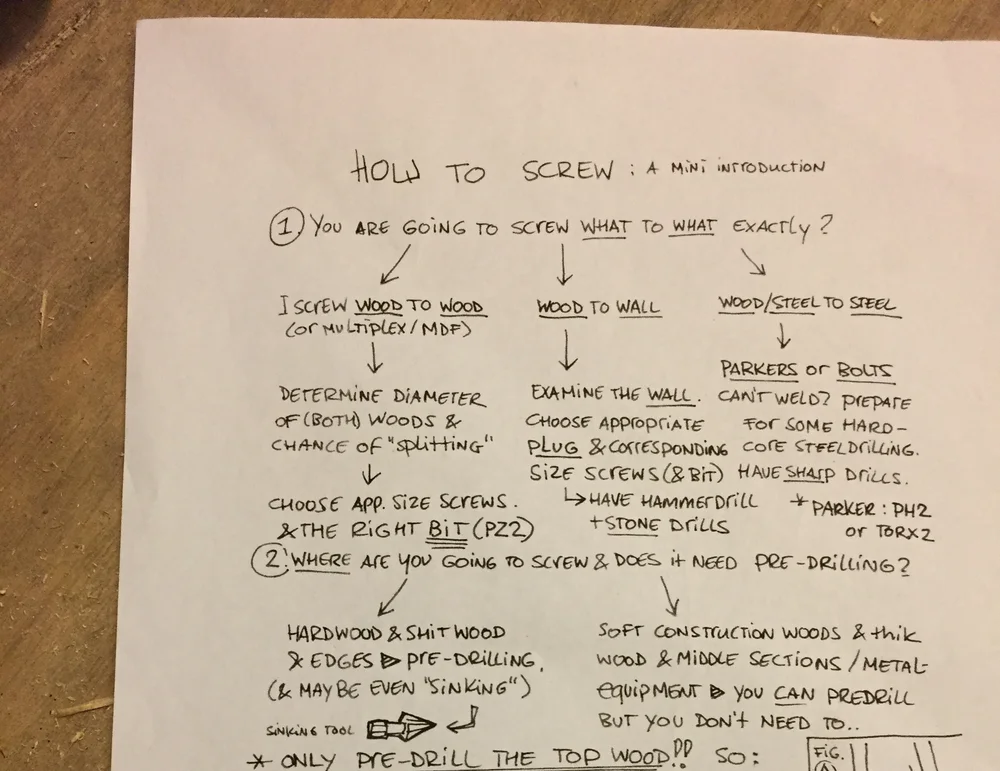 HOW TO SCREW : A MINI INTRODUCTION
1 YOU ARE GOING TO SCREW WHAT TO WHAT EXACTLY?
I SCREW WOOD TO WOOD
(OR MULTIPLEX/MDF)
DETERMINE DIAMETER
OF (BOTH) WOODS &
CHANCE OF "SPLITTING"
CHOOSE APP. SIZE SCREWS.
& THE RIGHT BIT (PZ2)
WOOD TO WALL
EXAMINE THE WALL.
CHOOSE APPROPRIATE
PLUG & CORRESPONDING
SIZE SCREWS (& BIT)
HAVE HAMMERDRILL
+ STONE DRILLS
WOOD/STEEL TO STEEL
PARKERS OR BOLTS
CAN'T WELD? PREPARE
FOR SOME HARD-
CORE STEELDRILLING.
HAVE SHARP DRILLS.
* PARKER: PH2
OR TORX2
2: WHERE ARE YOU GOING TO SCREW & DOES IT NEED PRE-DRILLING?
HARDWOOD & SHIT WOOD
& EDGES ▷ PRE-DRILLING,
(& MAYBE EVEN "SINKING")
SINKING TOOL
SOFT CONSTRUCTION WOODS & THIK
WOOD & MIDDLE SECTIONS / METAL-
EQUIPMENT ▷ YOU CAN PREDRILL
BUT YOU DON'T NEED TO..
* ONLY PRE-DRILL THE TOP WOOD!! SO:
FIG.
A